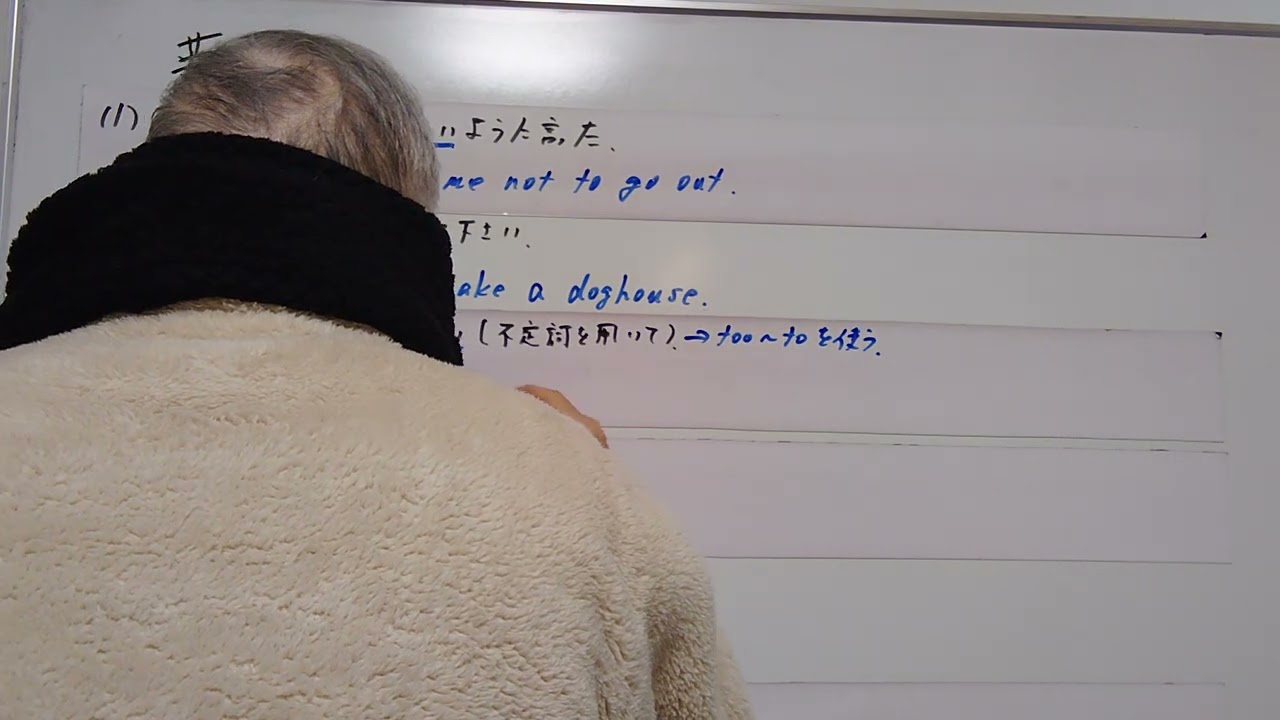 英
(1) いように言った。
me not to go out.
下さい。
ake a doghouse.
(不定詞を用いて)。→too～toを使う。